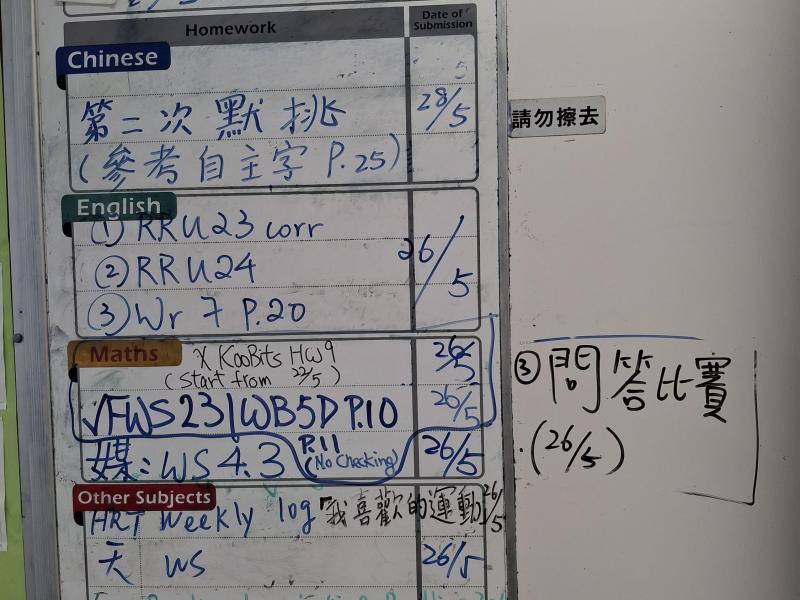 Homework
Date of Submission
Chinese
第二次默挑
28/5
(參考自主字 P.25)
請勿擦去
English
① RRU23 corr
② RRU24
26/5
③ Wr 7 P.20
Maths
X KooBits HW9
26/5
(Start from 22/5)
√FWS23|WB5D P.10
26/5
P.11
媒: WS 4.3
(No Checking)
26/5
③ 問答比賽
(26/5)
Other Subjects
HRT Weekly log「我喜歡的運動
26/5
天 WS
26/5